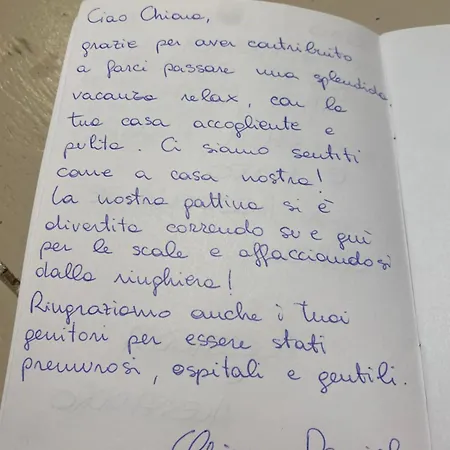 Ciao Chiara,
grazie per aver contribuito
a farci passare una splendida
vacanza relax, con la
tua casa accogliente e
pulita. Ci siamo sentiti
come a casa nostra!
La nostra gattina si è
divertita correndo su e giù
per le scale e affacciandosi
dalla ringhiera!
Ringraziamo anche i tuoi
genitori per essere stati
premurosi, ospitali e gentili.